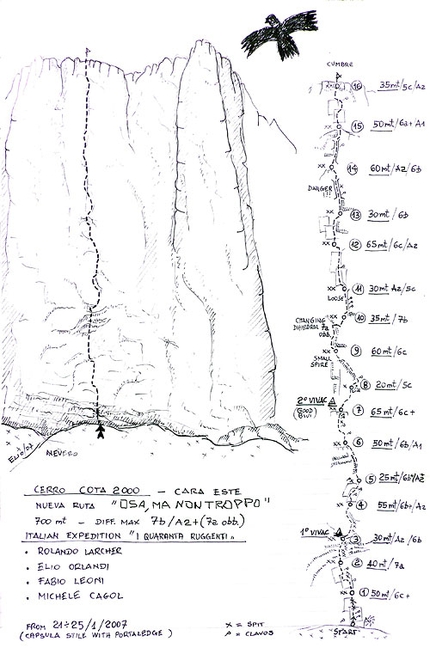 CUMBRE
16 35mt/5c/A2
15 50mt/6a+A1
14 60mt/A2/6b
DANGER !!!
13 30mt/6b
12 65mt/6c/A2
11 30mt A2/5c
LOOSE
10 35mt/7b
CHANGING DIHEDRAL 7a obb.
9 60mt/6c
SMALL SPIRE
8 20mt/5c
2º VIVAC
(GOOD BIVI)
7 65mt/6c+
6 50mt/6b/A1
5 25mt/6b/A2
4 55mt/6b+/A2
1º VIVAC
3 30mt/A2/6b
2 40mt/7a
1 50mt/6c+
START
NEVERO
CERRO COTA 2000 — CARA ESTE
NUEVA RUTA "OSA, MA NON TROPPO"
700 mt - DIFF. MAX 7b/A2+(7a obb.)
ITALIAN EXPEDITION "I QUARANTA RUGGENTI"
• ROLANDO LARCHER
• ELIO ORLANDI
• FABIO LEONI
• MICHELE CAGOL
FROM 21÷25/1/2007
(CAPSULA STILE WITH PORTALEDGE)
X = SPIT
= CLAVOS